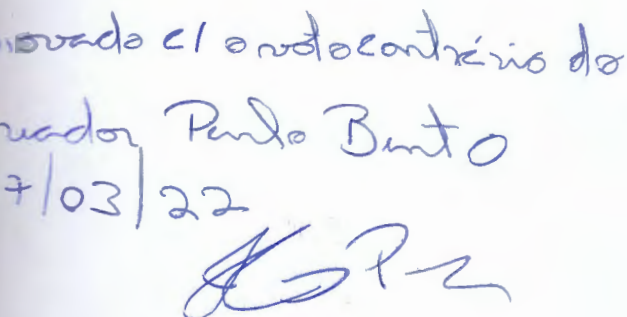 ovado c/ o voto contrário do
reador Paulo Bento
7/03/22